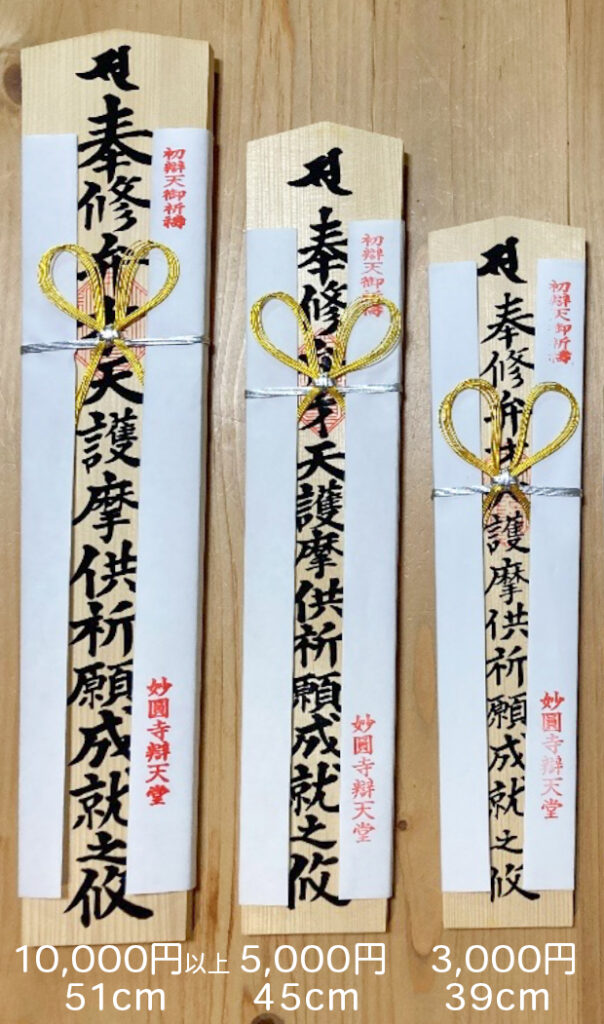 奉修弁才天護摩供祈願成就之攸
初辯天御祈祷
妙圓寺辯天堂
奉修弁才天護摩供祈願成就之攸
初辯天御祈祷
妙圓寺辯天堂
奉修弁才天護摩供祈願成就之攸
初辯天御祈祷
妙圓寺辯天堂
10,000円以上 5,000円 3,000円
51cm 45cm 39cm